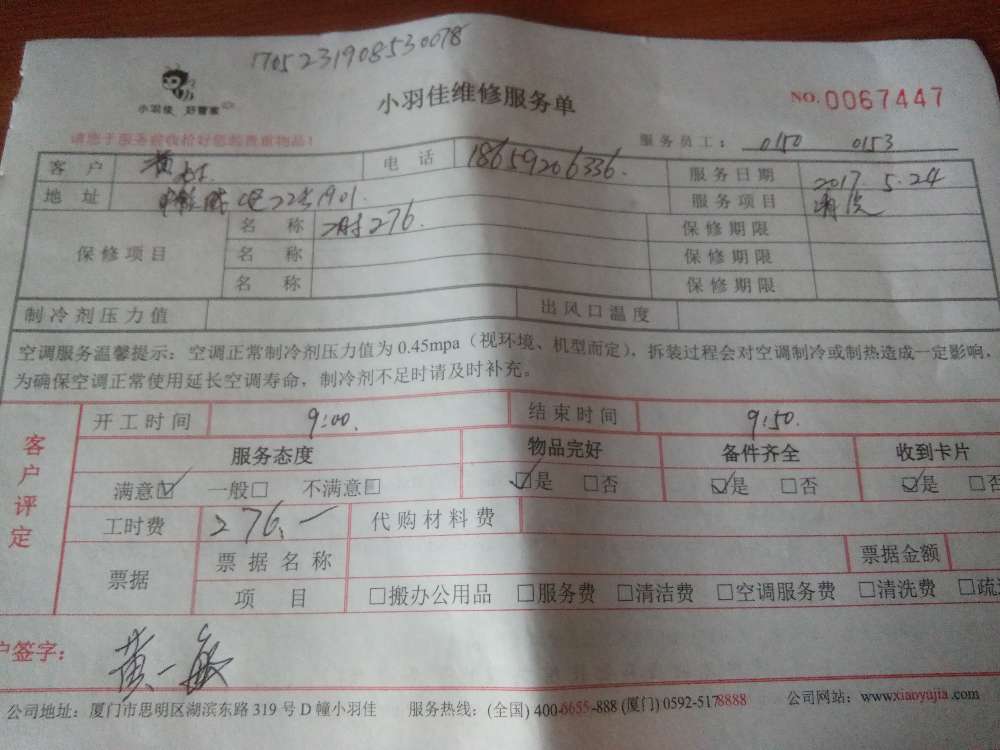 1705231908530078
小羽佳 好管家
小羽佳维修服务单
NO.0067447
请您于服务前收拾好您的贵重物品！
服务员工： 0150 0153
客户 黄 电话 18659206336. 服务日期 2017.5.24
地址 22 1901. 服务项目 清洗
保修项目 名称 276. 保修期限
名称 保修期限
名称 保修期限
制冷剂压力值 出风口温度
空调服务温馨提示：空调正常制冷剂压力值为0.45mpa（视环境、机型而定），拆装过程会对空调制冷或制热造成一定影响，
为确保空调正常使用延长空调寿命，制冷剂不足时请及时补充。
客户评定
开工时间 9:00. 结束时间 9:50.
服务态度 物品完好 备件齐全 收到卡片
满意☑ 一般□ 不满意□ ☑是 □否 ☑是 □否 ☑是 □否
工时费 276.一 代购材料费
票据 票据名称 票据金额
项目 □搬办公用品 □服务费 □清洁费 □空调服务费 □清洗费 □疏
户签字： 黄一敏
公司地址：厦门市思明区湖滨东路319号D幢小羽佳 服务热线：(全国) 400-6655-888 (厦门) 0592-5178888 公司网站：www.xiaoyujia.com